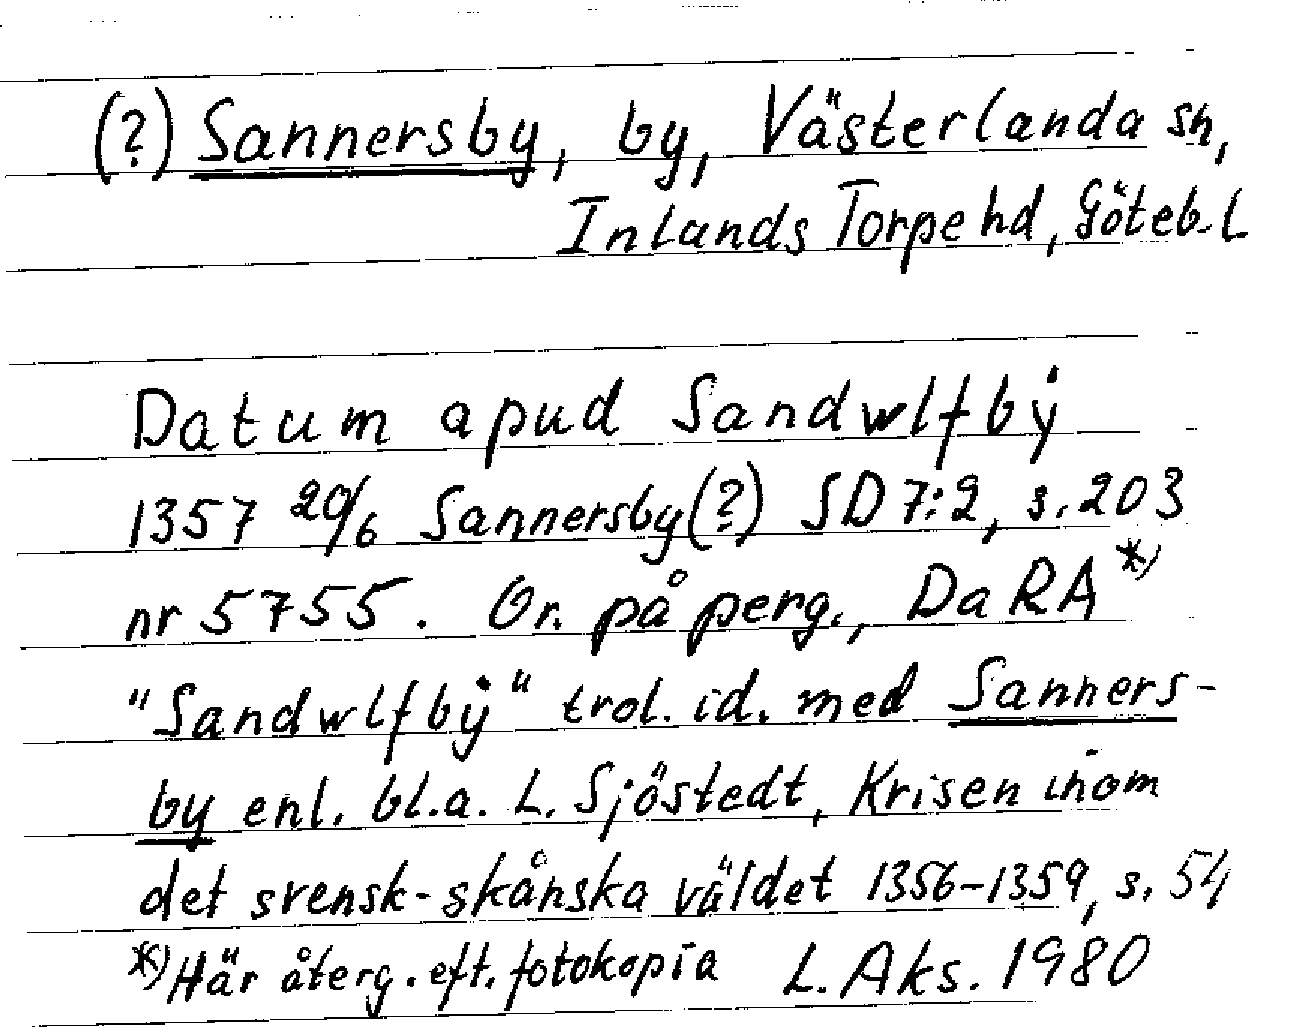 (?) Sannersby, by, Västerlanda sn,
Inlands Torpe hd, Göteb. L
Datum apud Sandwlfbẏ
1357 20/6 Sannersby(?) SD 7:2, s. 203
nr 5755. Or. på perg., DaRA *)
"Sandwlfbẏ" trol. id. med Sanners-
by enl. bl.a. L. Sjöstedt, Krisen inom
det svensk-skånska väldet 1356-1359, s. 54
*) Här återg. eft. fotokopia L. Aks. 1980